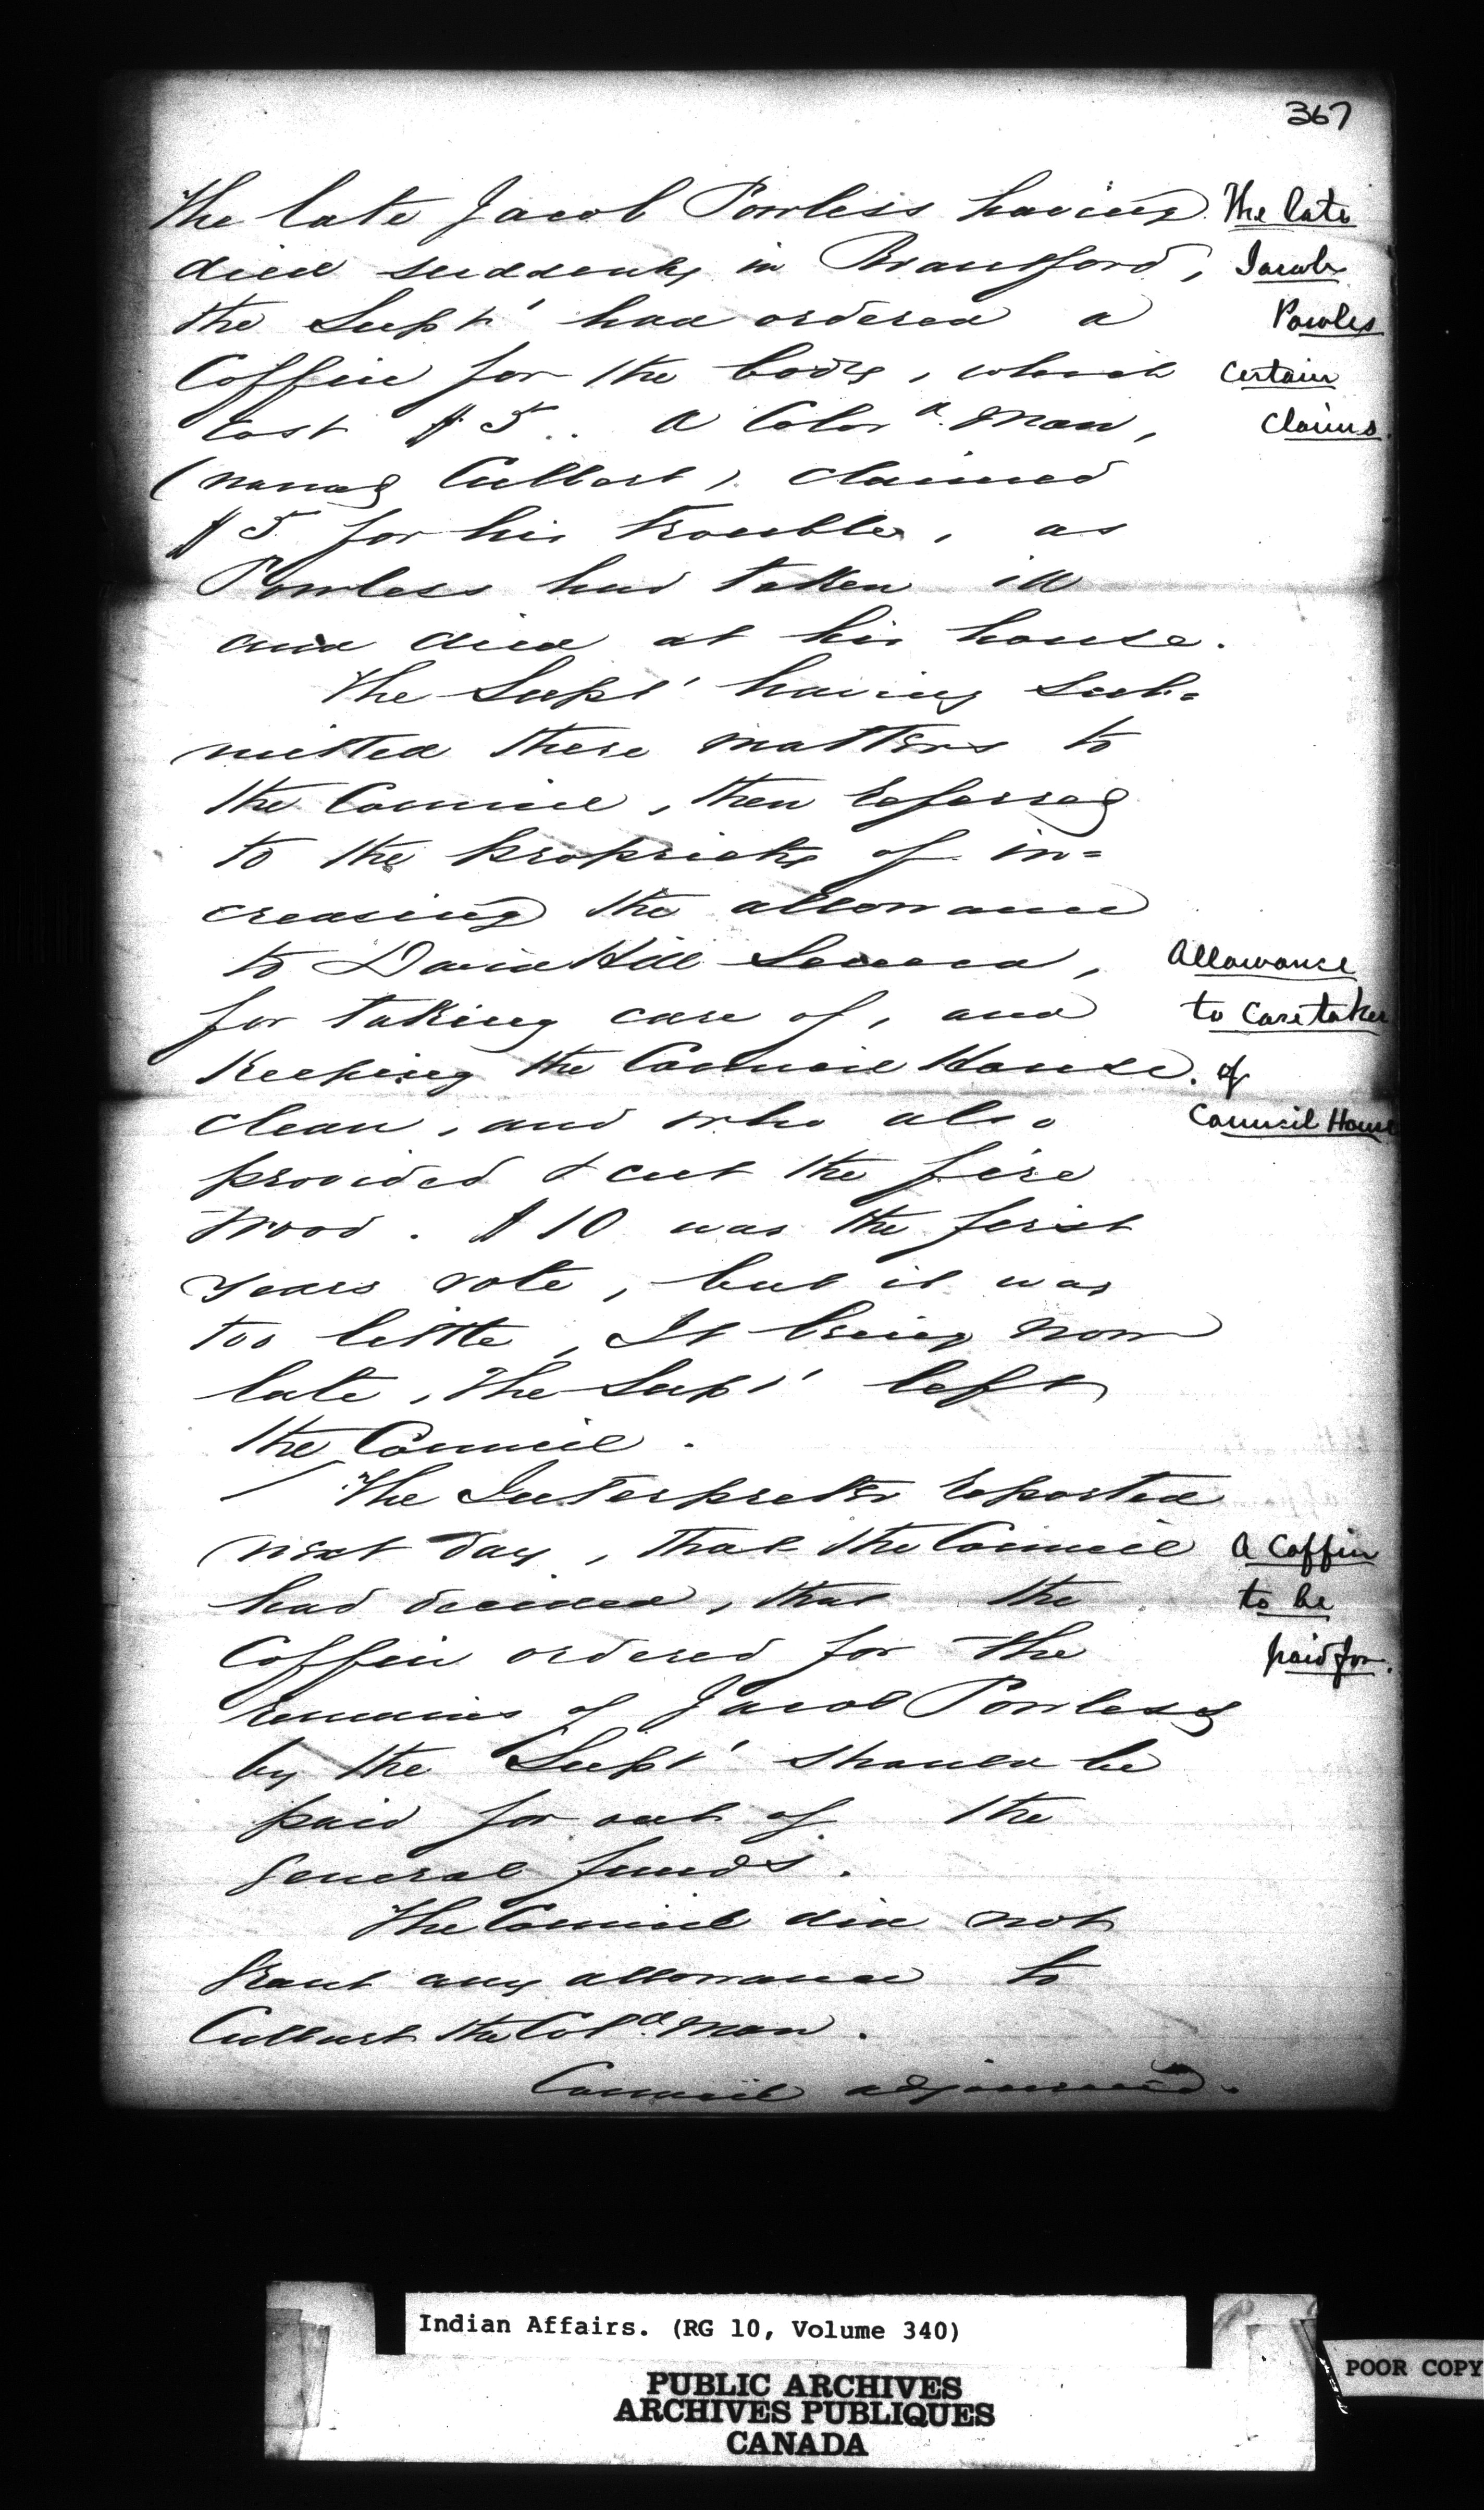 367
The late Jacob Powless having
died suddenly in Brantford,
the Supt' had ordered a
Coffin for the body, which
cost $5.. A Colord. Man,
(named Culbert), claimed
$5 for his trouble, as
Powless had taken ill
and died at his house.
The Supt' having sub=
mitted these matters to
the Council, then referred
to the propriety of in=
creasing the allowance
to David Hill Seneca,
for taking care of, and
Keeping the Council House
clean, and who also
provided & cut the fire
wood. $10 was the first
years vote, but it was
too little, It being now
late, The Supt' left
the Council.
The Interpreter reported
next day, that the Council
had decided, that the
Coffin ordered for the
remains of Jacob Powless
by the Supt' should be
paid for out of the
General funds.
The Council did not
Grant any allowance to
Culbert the Cold. Man.
Council adjourned.
The late
Jacob
Powles
certain
claims.
Allowance
to Caretaker
of
Council House
A Coffin
to be
paid for.
Indian Affairs. (RG 10, Volume 340)
PUBLIC ARCHIVES
ARCHIVES PUBLIQUES
CANADA
POOR COPY